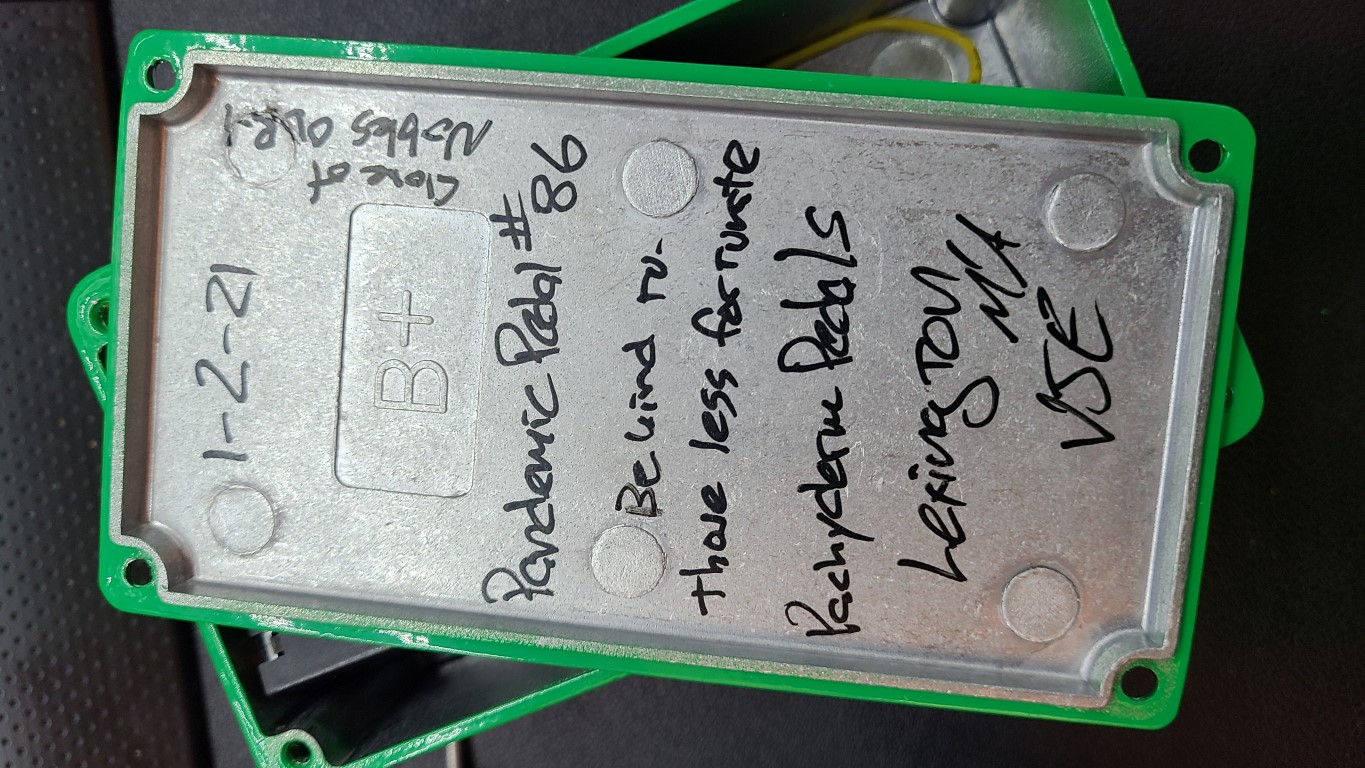 1-2-21
Clone of
Nobles ODR-1
B+
Pandemic Pedal #86
Be kind to
those less fortunate
Pachyderm Pedals
Lexington,
MA
VSE